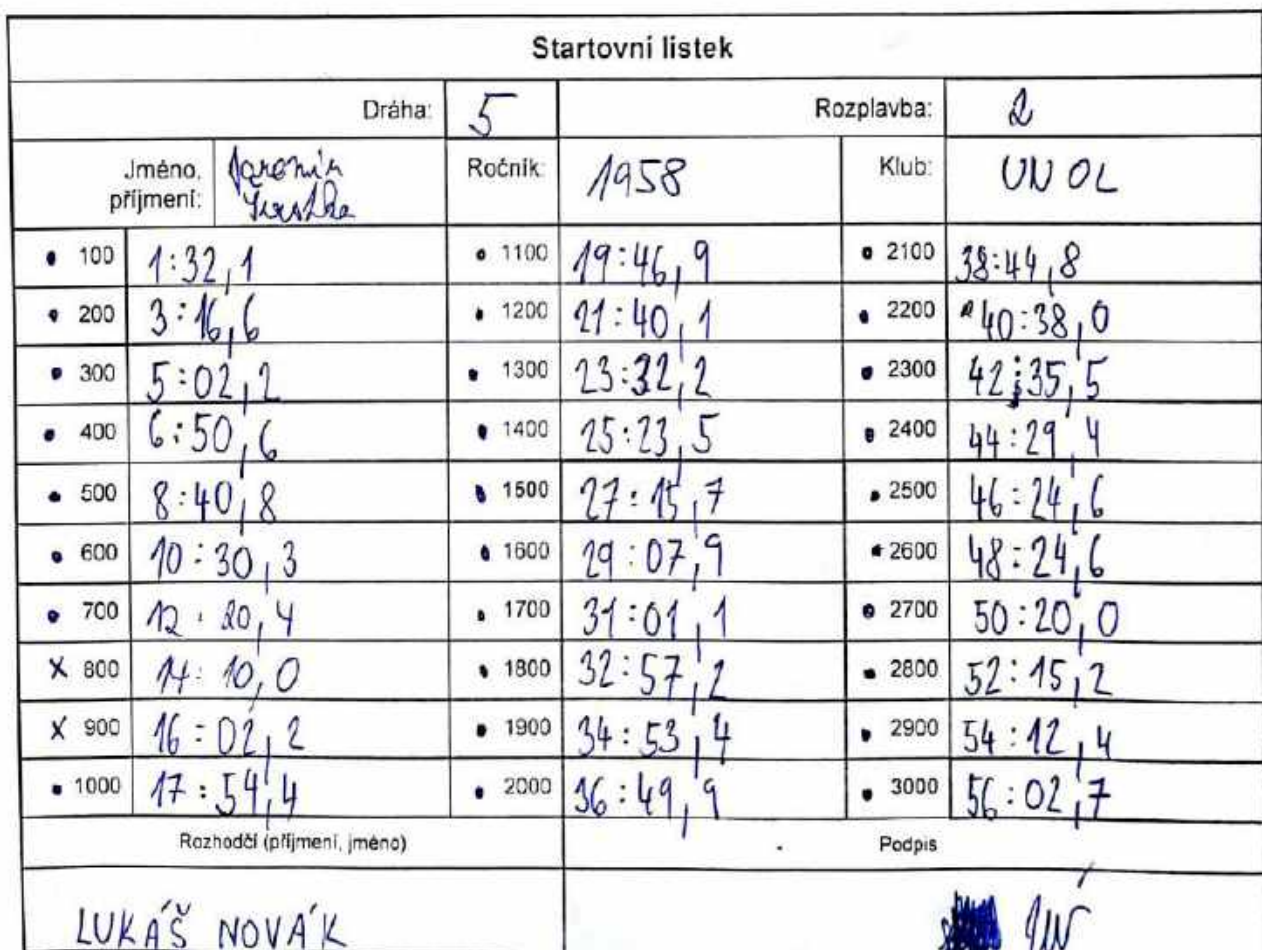 Startovní lístek
Dráha: 5 Rozplavba: 2
Jméno, příjmení: Jaromír Ročník: 1958 Klub: UN OL
• 100 1:32,1 • 1100 19:46,9 • 2100 38:44,8
• 200 3:16,6 • 1200 21:40,1 • 2200 40:38,0
• 300 5:02,2 • 1300 23:32,2 • 2300 42:35,5
• 400 6:50,6 • 1400 25:23,5 • 2400 44:29,4
• 500 8:40,8 • 1500 27:15,7 • 2500 46:24,6
• 600 10:30,3 • 1600 29:07,9 • 2600 48:24,6
• 700 12:20,4 • 1700 31:01,1 • 2700 50:20,0
X 800 14:10,0 • 1800 32:57,2 • 2800 52:15,2
X 900 16:02,2 • 1900 34:53,4 • 2900 54:12,4
• 1000 17:54,4 • 2000 36:49,9 • 3000 56:02,7
Rozhodčí (příjmení, jméno) Podpis
LUKÁŠ NOVÁK